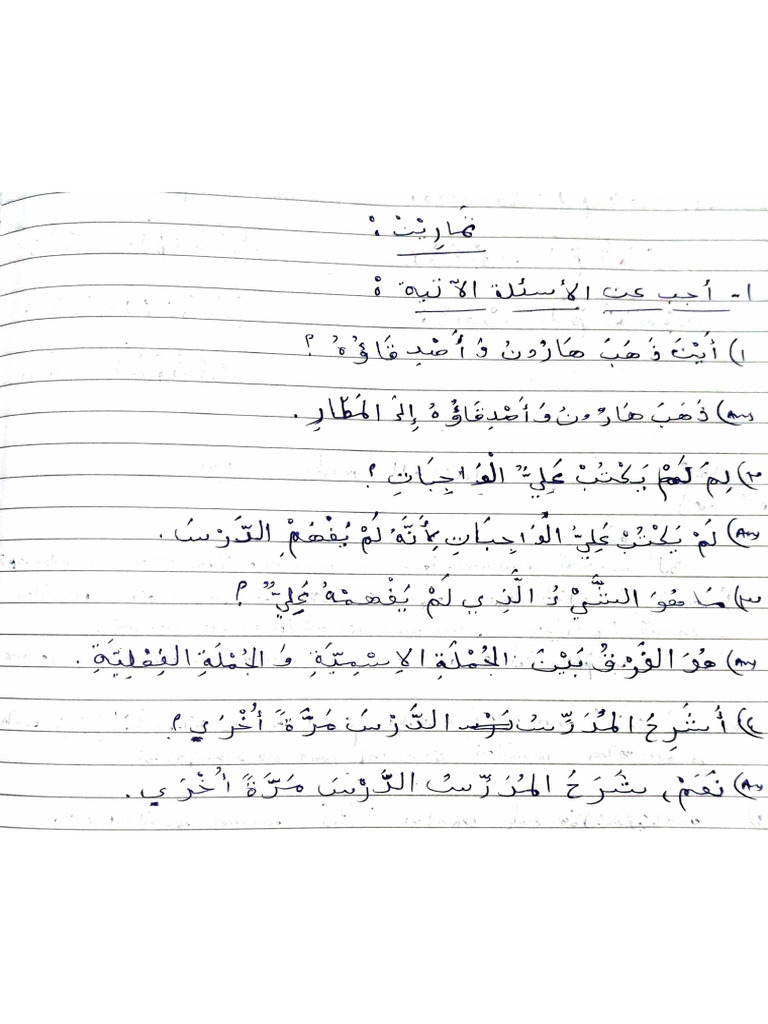 تَمَارِيْن :
١- أجب عن الأسئلة الآتية :
١) أَيْنَ ذَهَبَ هَارُونُ وَ أَصْدِقَاؤُهُ ؟
Ans) ذَهَبَ هَارُونُ وَأَصْدِقَاؤُهُ إِلَى المَطَارِ .
٢) لِمَ لَمْ يَكْتُبْ عَلِيٌّ الْوَاجِبَاتِ ؟
Ans) لَمْ يَكْتُبْ عَلِيُّ الْوَاجِبَاتِ لِأَنَّهُ لَمْ يُفْهَمْ الدَّرْسَ .
٣) مَا هُوَ الشَّيْءُ الَّذِي لَمْ يَفْهَمْهُ عَلِيٌّ ؟
Ans) هُوَ الفَرْقُ بَيْنَ الجُمْلَةِ الاِسْمِيَّةِ وَ الجُمْلَةِ الفِعْلِيَّةِ .
٤) أَشَرِحَ المُدَرِّسُ الدَّرْسَ مَرَّةً أُخْرَي ؟
Ans) نَعَمْ، شَرَحَ المُدَرِّسُ الدَّرْسَ مَرَّةً أُخْرَي .